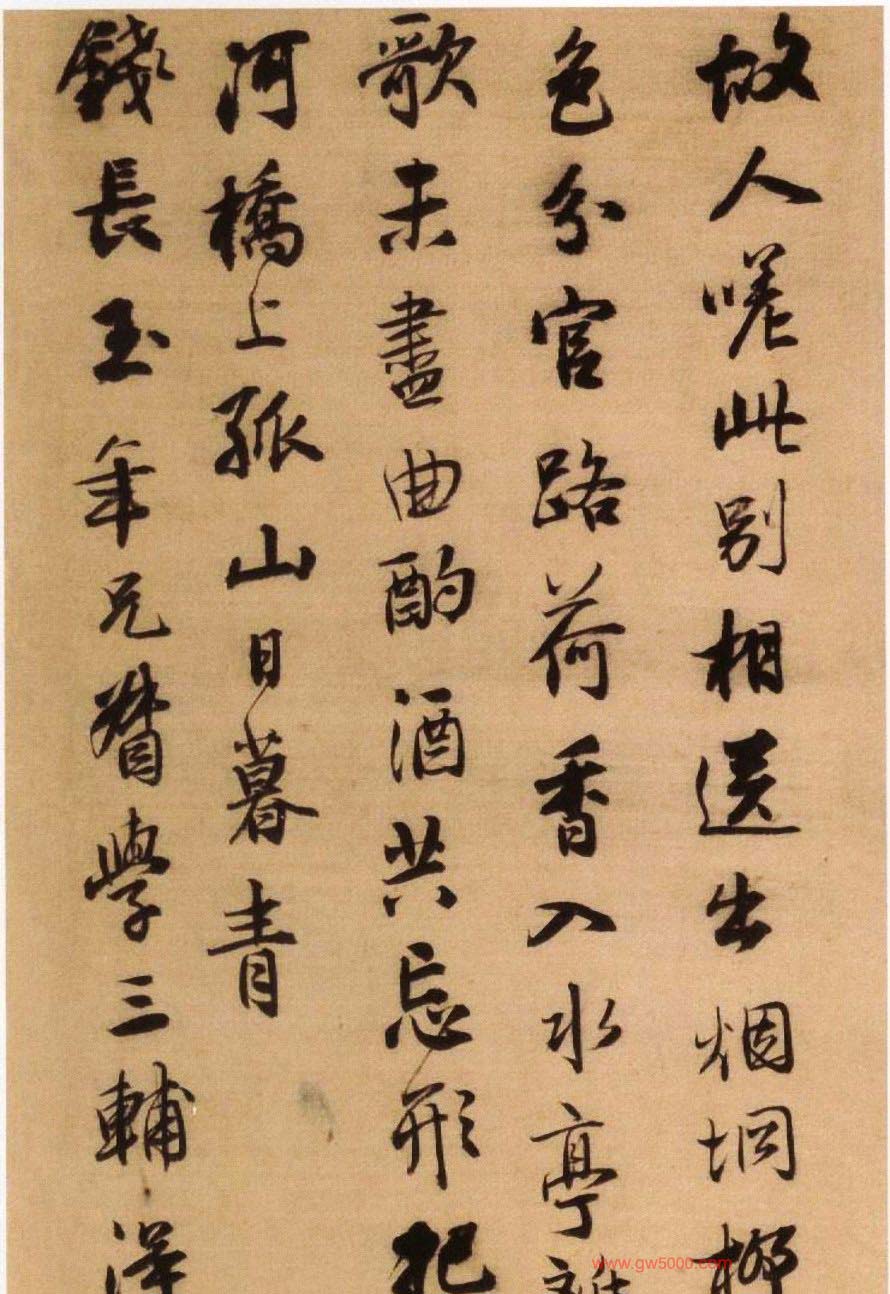 故人嗟此別相送出烟坰柳
色分官路荷香入水亭離
歌未盡曲酌酒共忘形把
河橋上孤山日暮青
錢長玉年兄督學三輔
www.gw5000.com